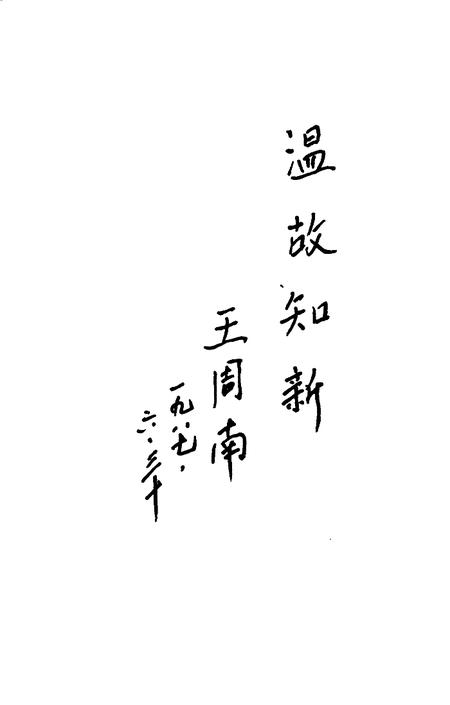 温故知新
王周南
一九八七.
六.三十